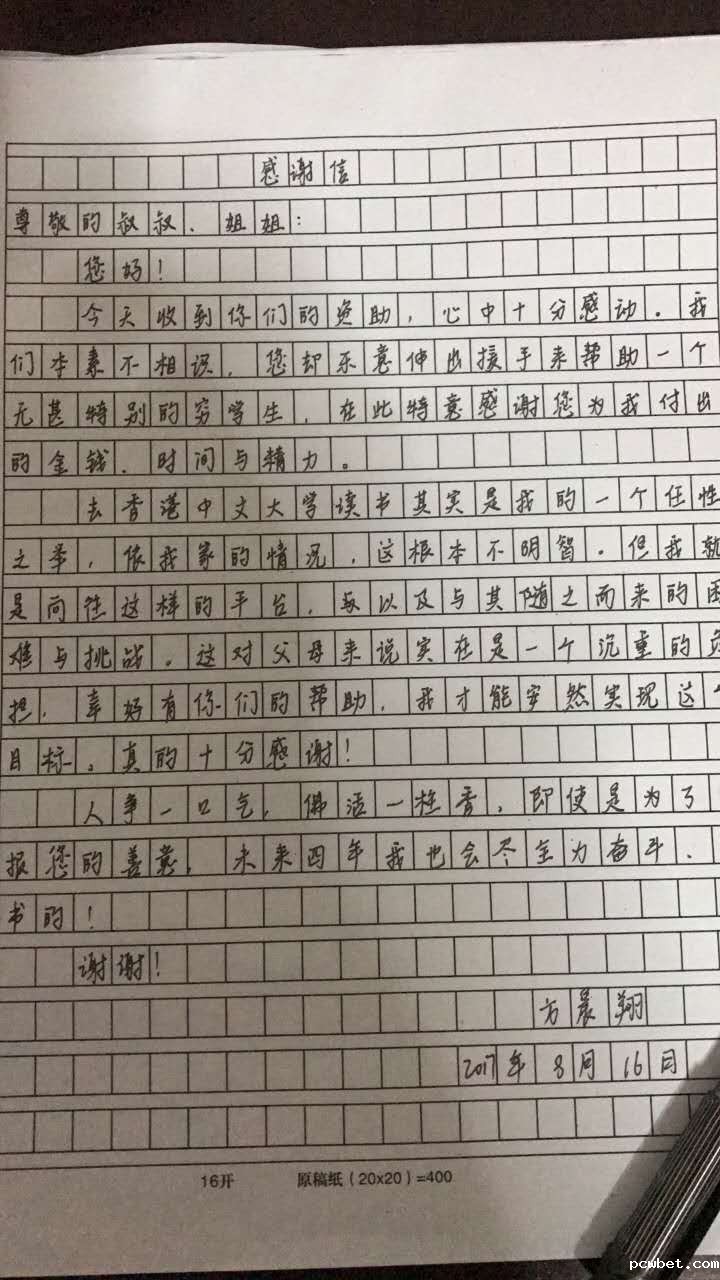 感谢信
尊敬的叔叔、姐姐：
您好！
今天收到你们的资助，心中十分感动。我
们本素不相识，您却乐意伸出援手来帮助一个
无甚特别的穷学生，在此特意感谢您为我付出
的金钱、时间与精力。
去香港中文大学读书其实是我的一个任性
之举，依我家的情况，这根本不明智。但我就
是向往这样的平台，与以及与其随之而来的困
难与挑战。这对父母来说实在是一个沉重的负
担，幸好有你们的帮助，我才能安然实现这个
目标。真的十分感谢！
人争一口气，佛活一柱香，即使是为了
报您的善意，未来四年我也会尽全力奋斗、
书的！
谢谢！
方晨翔
2017年8月16日
16开 原稿纸（20x20）=400
pcwbet.com